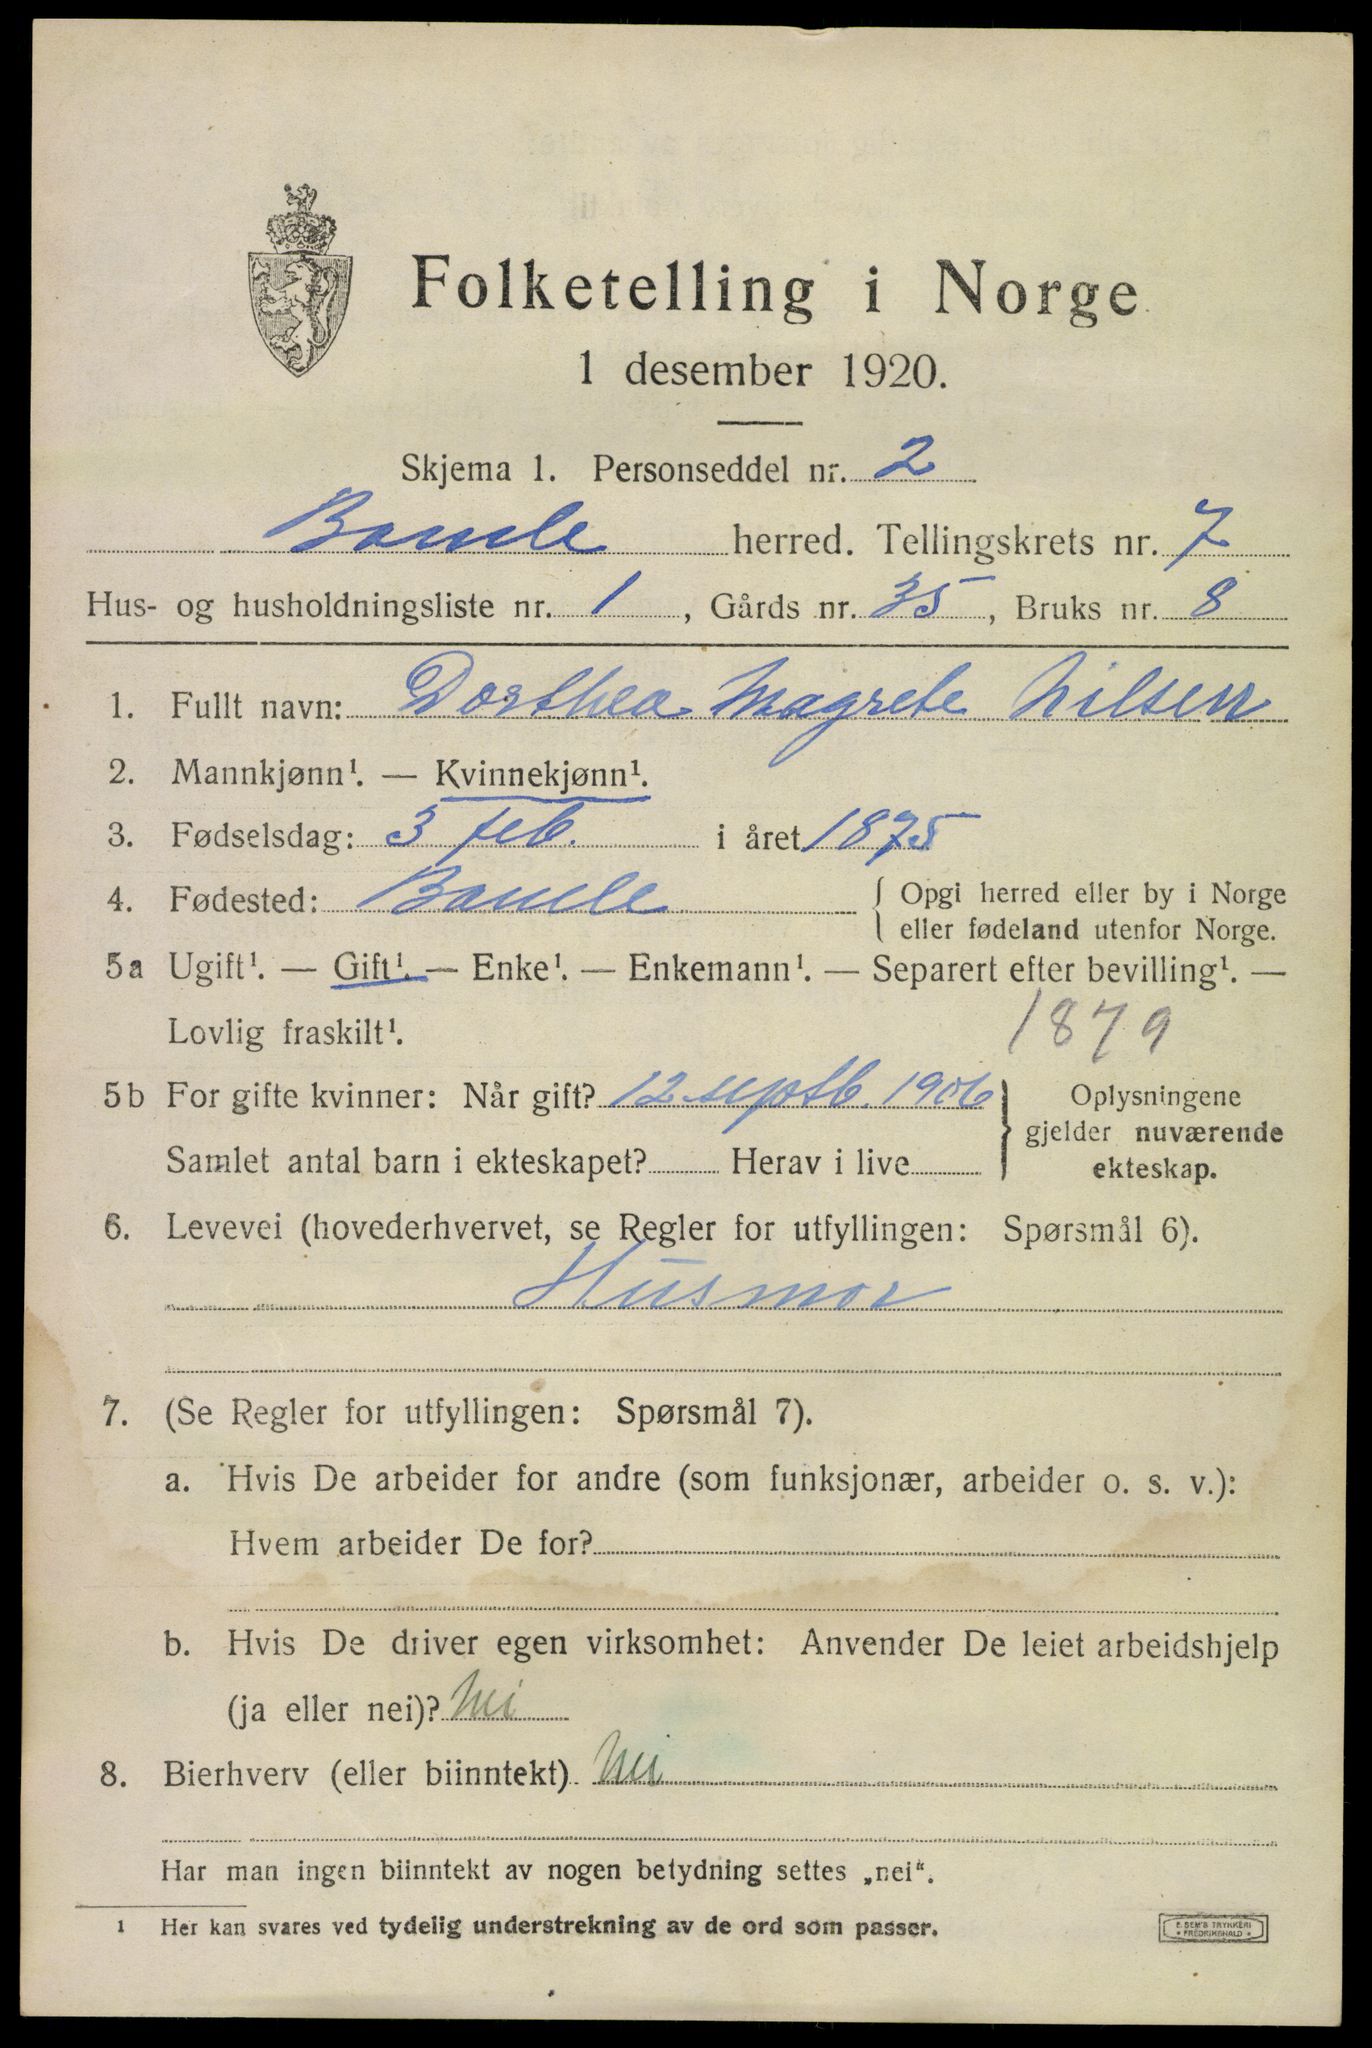 Folketelling i Norge
1 desember 1920.
Skjema 1. Personseddel nr. 2
Bamle herred. Tellingskrets nr. 7
Hus- og husholdningsliste nr. 1, Gårds nr. 35, Bruks nr. 8
1. Fullt navn: Dorthea Magrete Nilsen
2. Mannkjønn¹. — Kvinnekjønn¹.
3. Fødselsdag: 3 feb. i året 1875
4. Fødested: Bamle { Opgi herred eller by i Norge
eller fødeland utenfor Norge.
5a Ugift¹. — Gift¹. — Enke¹. — Enkemann¹. — Separert efter bevilling¹. —
Lovlig fraskilt¹. 1879
5b For gifte kvinner: Når gift? 12 septb. 1906 } Oplysningene
gjelder nuværende
Samlet antal barn i ekteskapet? Herav i live ekteskap.
6. Levevei (hovederhvervet, se Regler for utfyllingen: Spørsmål 6).
Husmor
7. (Se Regler for utfyllingen: Spørsmål 7).
a. Hvis De arbeider for andre (som funksjonær, arbeider o. s. v.):
Hvem arbeider De for?
b. Hvis De driver egen virksomhet: Anvender De leiet arbeidshjelp
(ja eller nei)? Nei
8. Bierhverv (eller biinntekt) Nei
Har man ingen biinntekt av nogen betydning settes „nei“.
1 Her kan svares ved tydelig understrekning av de ord som passer.
E. SEM'S TRYKKERI
* FREDRIKSHALD *